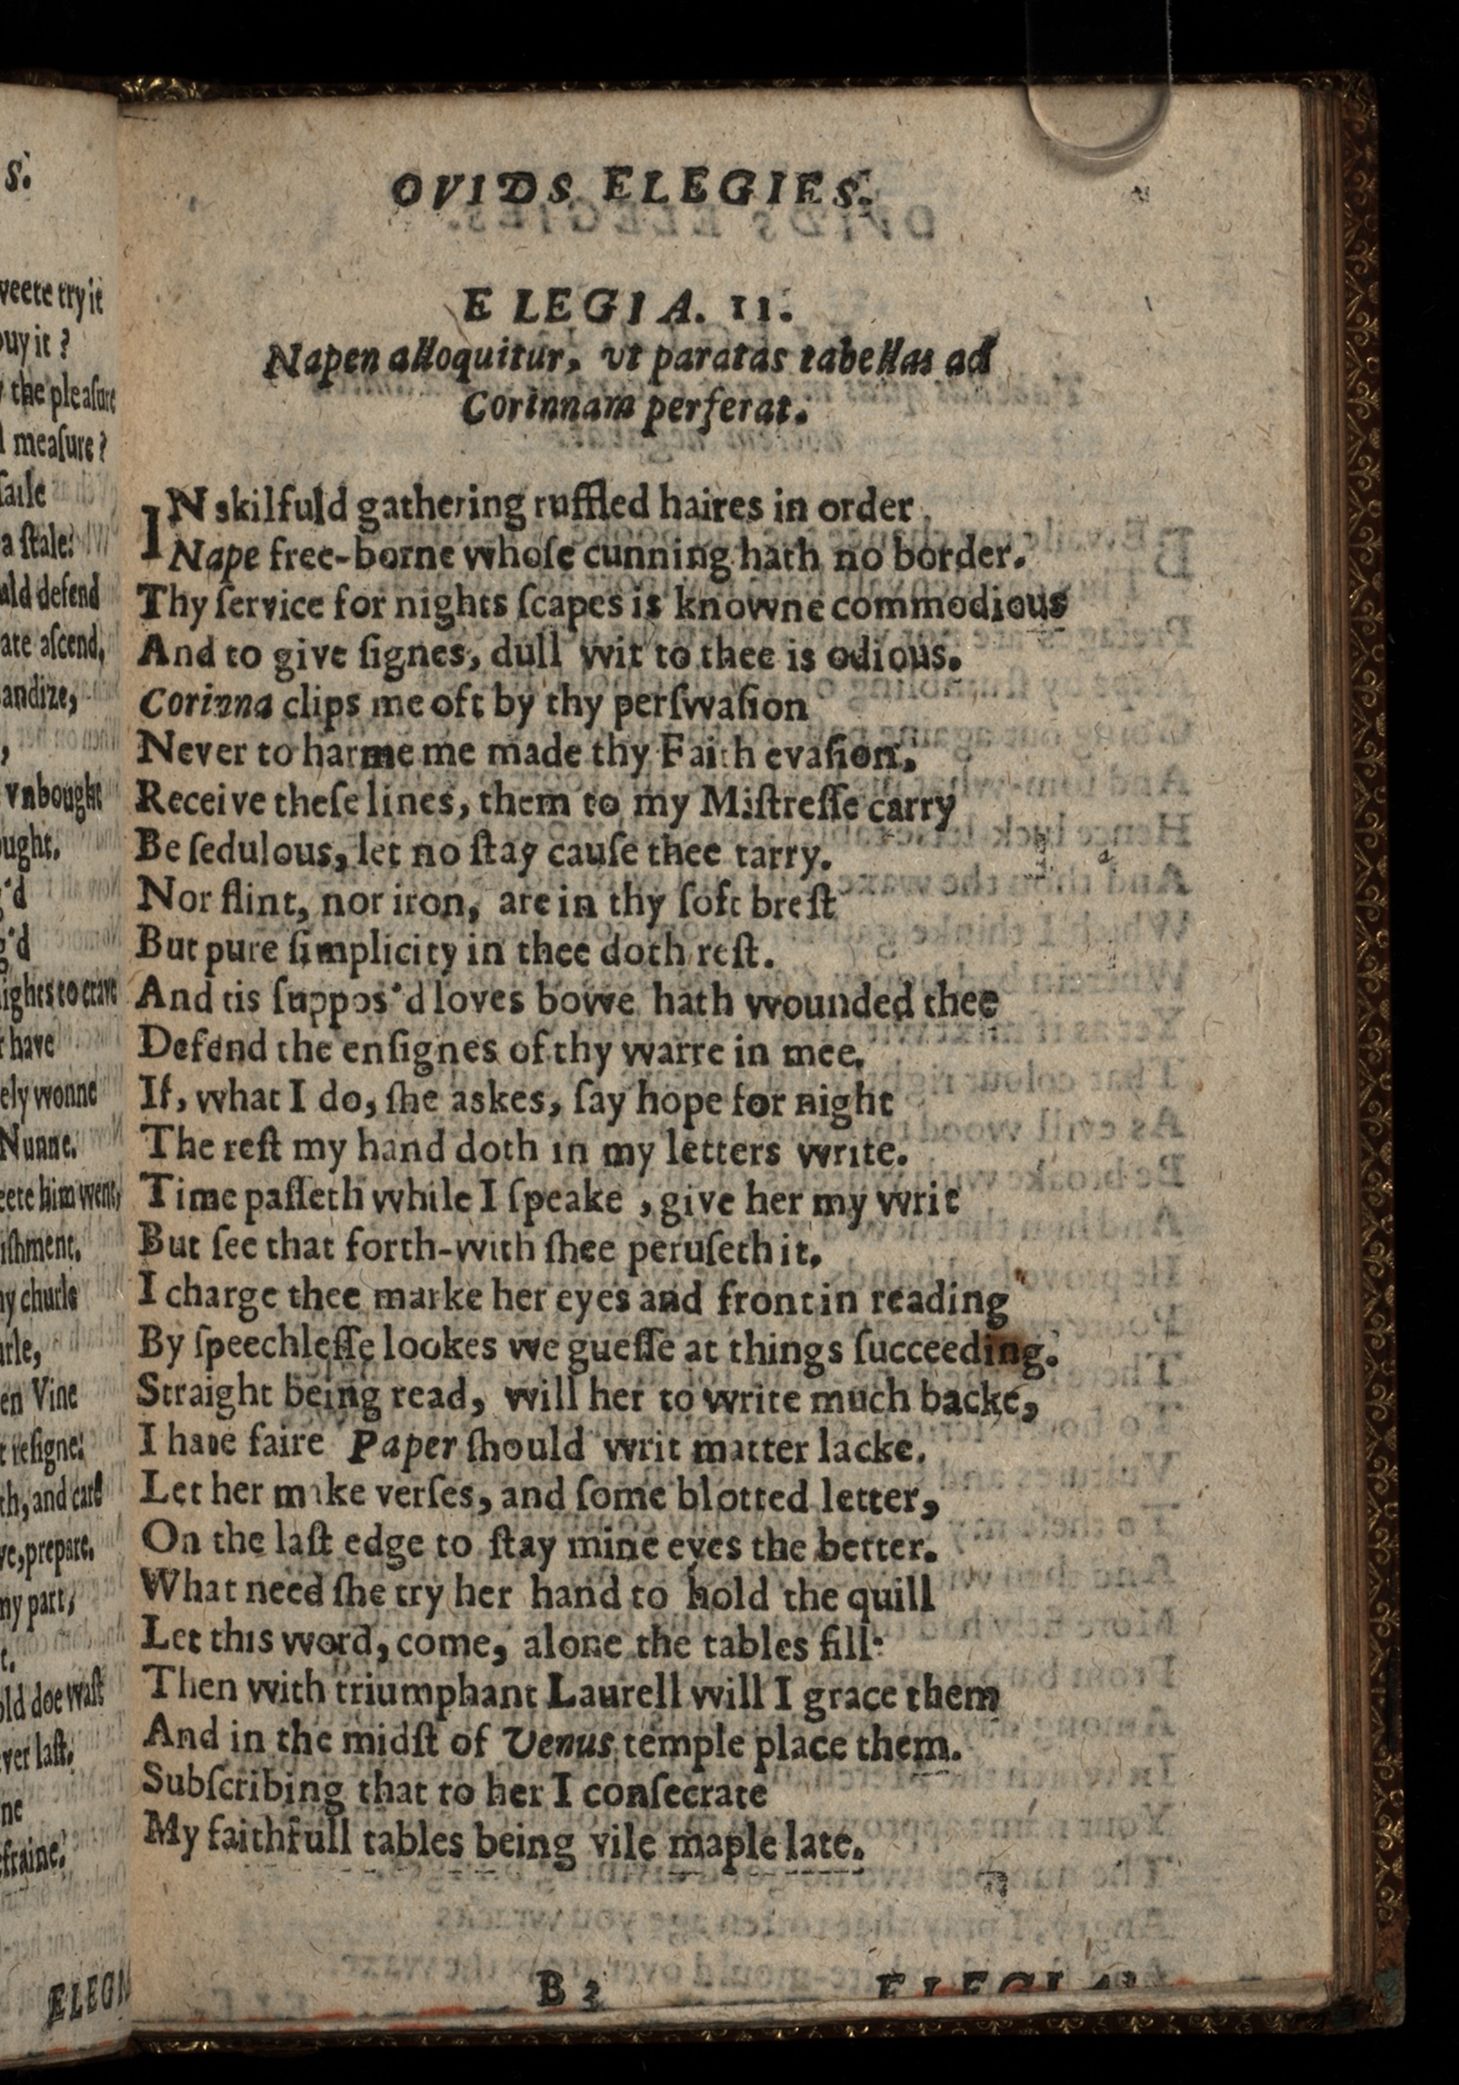 OVIDS ELEGIES.
ELEGIA. 11.
Napen alloquitur, vt paratas tabellas ad
Corinnam perferat.
IN skilfuld gathering ruffled haires in order
Nape free-borne whoſe cunning hath no border.
Thy ſervice for nights ſcapes is knowne commodious
And to give ſignes, dull wit to thee is odious.
Corinna clips me oft by thy perſwaſion
Never to harme me made thy Faith evaſion.
Receive theſe lines, them to my Miſtreſſe carry
Be ſedulous, let no ſtay cauſe thee tarry.
Nor flint, nor iron, are in thy ſoft breſt
But pure ſimplicity in thee doth reſt.
And tis ſuppos'd loves bowe hath wounded thee
Defend the enſignes of thy warre in mee.
If, what I do, ſhe askes, ſay hope for night
The reſt my hand doth in my letters write.
Time paſſeth while I ſpeake , give her my writ
But ſee that forth-with ſhee peruſeth it.
I charge thee marke her eyes and front in reading
By ſpeechleſſe lookes we gueſſe at things ſucceeding.
Straight being read, will her to write much backe,
I hate faire Paper ſhould writ matter lacke.
Let her make verſes, and ſome blotted letter,
On the laſt edge to ſtay mine eyes the better.
What need ſhe try her hand to hold the quill
Let this word, come, alone the tables fill.
Then with triumphant Laurell will I grace them
And in the midſt of Venus temple place them.
Subſcribing that to her I conſecrate
My faithfull tables being vile maple late.
B 3
s.
veete try it
buy it ?
the pleaſure
meaſure ?
ſaile
a ſtale.
defend
ate aſcend,
andize,
vnbought
ought.
'd
'd
ights to crave
have
ely wonne
Nunne.
him went,
iſhment.
my churle
en Vine
reſigne.
and
prepare.
my part,
t.
doe waſt
laſt.
ne